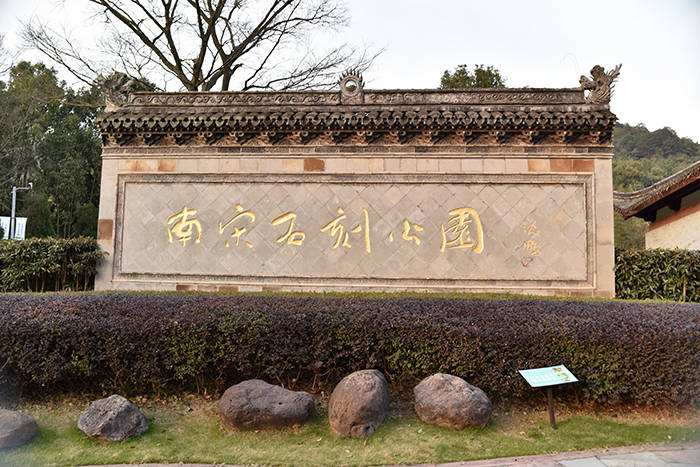 南宋石刻公園